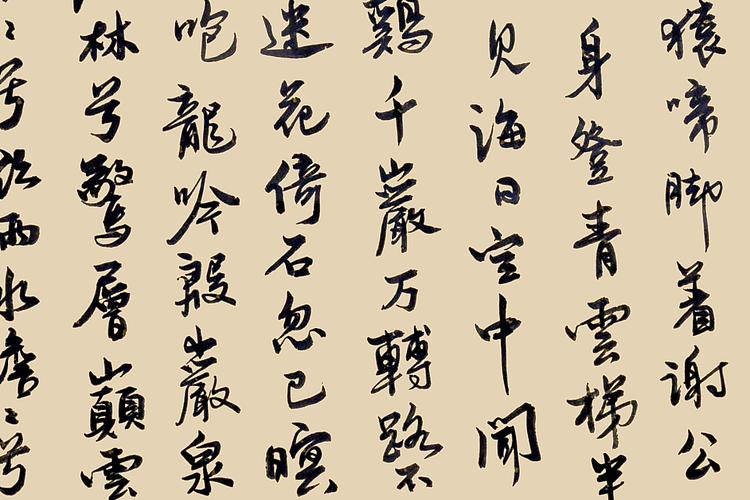 猿啼脚着谢公
身登青雲梯半
见海日空中闻
鷄千巖万轉路不
迷花倚石忽已暝
咆龍吟殷巖泉
林兮驚層巔雲
兮欲雨水澹澹兮